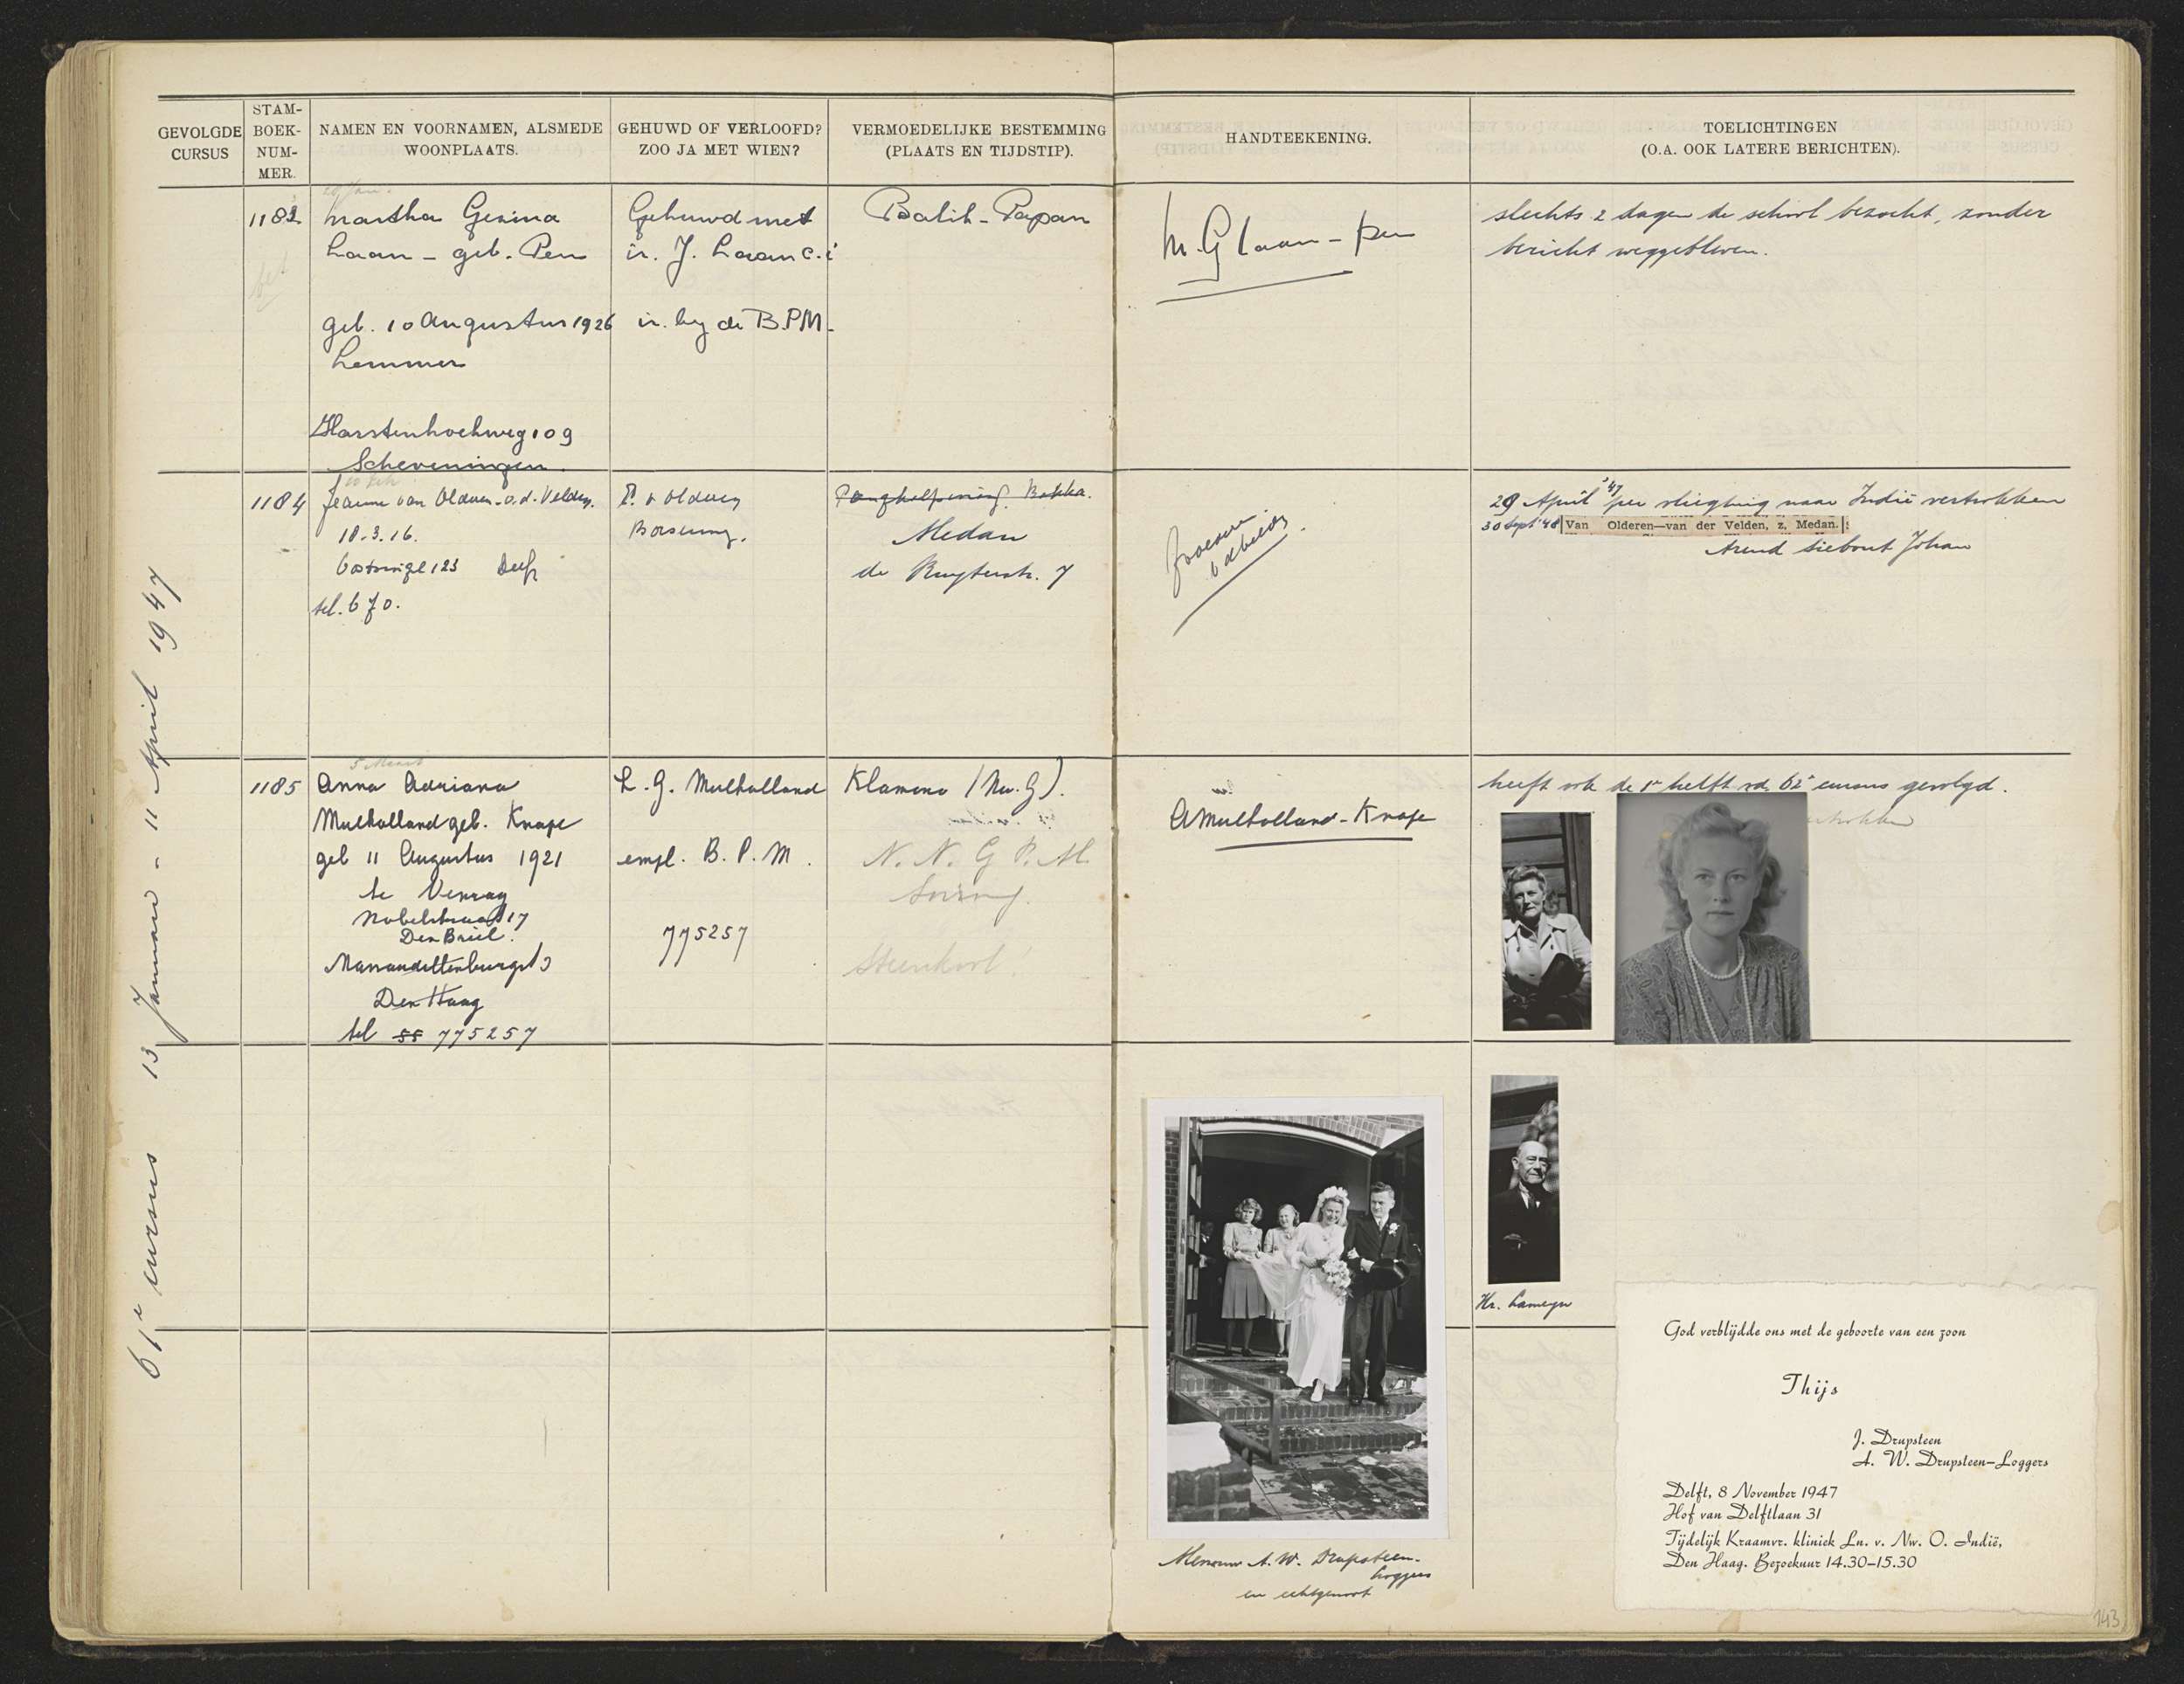 GEVOLGDE CURSUS
STAM-BOEK-NUM-MER.
NAMEN EN VOORNAMEN, ALSMEDE WOONPLAATS.
GEHUWD OF VERLOOFD? ZOO JA MET WIEN?
VERMOEDELIJKE BESTEMMING (PLAATS EN TIJDSTIP).
HANDTEEKENING.
TOELICHTINGEN (O.A. OOK LATERE BERICHTEN).
61e cursus 13 Januari - 11 April 1947
29 Jan.
Martha Gesina
Laan - geb. Pen
geb. 10 Augustus 1926
Lemmer
Harstenhoekweg 109
Scheveningen.
Gehuwd met
ir. J. Laan c.i
ir. bij de B.P.M.
Balik-Papan
M. G Laan - Pen
slechts 2 dagen de school bezocht, zonder
bericht weggebleven.
1184
Jeanne van Olderen-v.d. Velden.
18.3.16.
Oostsingel 123 Delft
tel. 670.
v Olderen
Medan
de Ruyterstr. 7
29 April '47 per vliegtuig naar Indië vertrokken
30 Sept '48 Van Olderen—van der Velden, z, Medan.
Arend Siebout Johan
5 Maart
1185
Anna Adriana
Mulholland geb. Knape
geb 11 Augustus 1921
te Venray
Nobelstraat 17
Den Briel.
Den Haag
tel 55 775257
L. G. Mulholland
empl. B. P. M.
775257
Klamono (Nw. G).
N. N. G. P. M.
Sorong.
Steenkool!
A Mulholland-Knape
heeft ook de 1e helft v.d. 62e cursus gevolgd.
vertrokken
Hr. Lameyn
Mevrouw A. W. Drupsteen-
Loggers
en echtgenoot
God verblijdde ons met de geboorte van een zoon
Thijs
J. Drupsteen
A. W. Drupsteen—Loggers
Delft, 8 November 1947
Hof van Delftlaan 31
Tijdelijk Kraamvr. kliniek Ln. v. Nw. O. Indië,
Den Haag. Bezoekuur 14.30—15.30
143